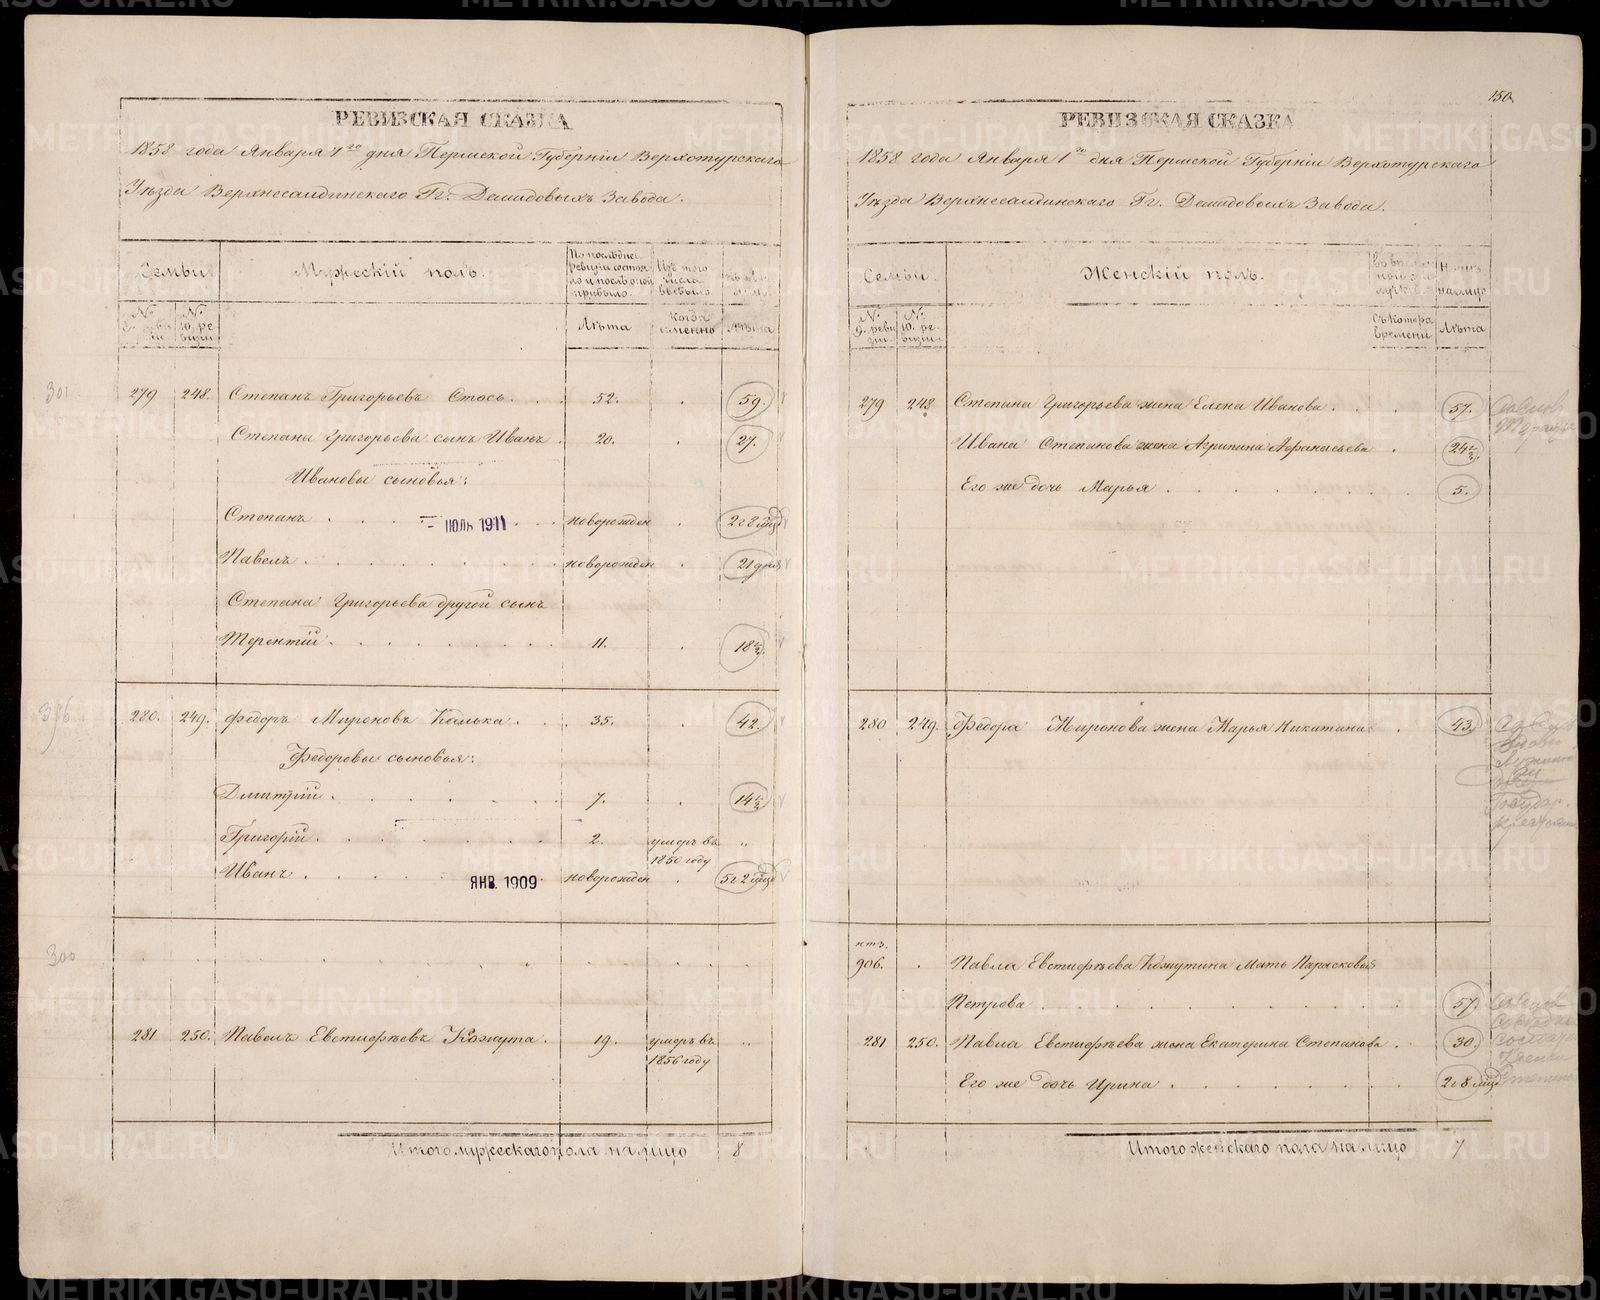 150
РЕВИЗСКАЯ СКАЗКА
1858 года Января 1го дня Пермской Губерніи Верхотурскаго
Уѣзда Верхнесалдинскаго Гг. Демидовыхъ Завода.
Семьи
Мужескій полъ.
По послѣдней ревизіи состояло и послѣ оной прибыло.
Изъ того числа выбыло
№ 9. ревизіи
№ 10. ревизіи
Лѣта
Когда именно
Лѣта
301
279 248. Степанъ Григорьевъ Стось. 52. 59.
Степана Григорьева сынъ Иванъ 20. 27.
Ивановы сыновья:
Степанъ новорожден 2 г 2 мца
ИЮЛЬ 1911
Павелъ новорожден 21 дня
Степана Григорьева другой сынъ
Терентій 11. 18 1/2
280. 249. Федоръ Мироновъ Калька. 35. 42.
Федоровы сыновья:
Дмитрій 7. 14 1/2
Григорій 2. умеръ въ 1850 году "
Иванъ новорожден 5 г 2 мца
ЯНВ. 1909
300
281 250. Павелъ Евстифѣевъ Кожута. 19. умеръ въ 1856 году "
Итого мужескаго пола на лицо 8
РЕВИЗСКАЯ СКАЗКА
1858 года Января 1го дня Пермской Губерніи Верхотурскаго
Уѣзда Верхнесалдинскаго Гг. Демидовыхъ Завода.
Семьи.
Женскій полъ.
На лицо
№ 9. ревизіи
№ 10. ревизіи
Съ котора времени
Лѣта
279 248 Степана Григорьева жена Елена Иванова 57.
Ивана Степанова жена Агрипина Афанасьева 24 1/2
Его же дочь Марья 5.
280 249. Федора Миронова жена Марья Никитина 43
906. Павла Евстифѣева Кожутина Мать Парасковья
Петрова 57
281 250. Павла Евстифѣева жена Екатерина Степанова 30.
Его же дочь Ирина 2 г 8 мцо
Итого женскаго пола на лицо 7
METRIKI.GASO-URAL.RU